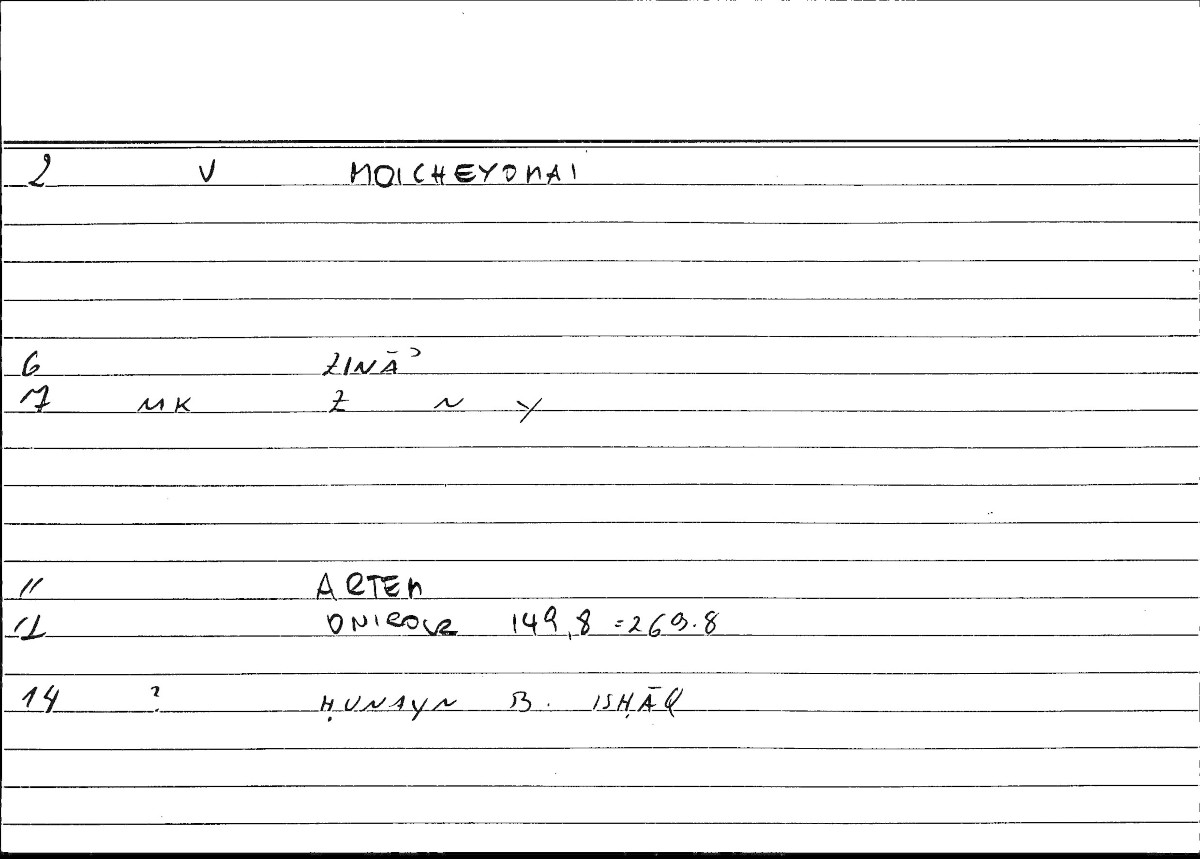 2 V MOICHEYOMAI
6 ZINĀʾ
7 MK Z N Y
11 ARTEM
12 ONIROCR 149,8 = 269.8
14 ? ḤUNAYN B. ISḤĀQ